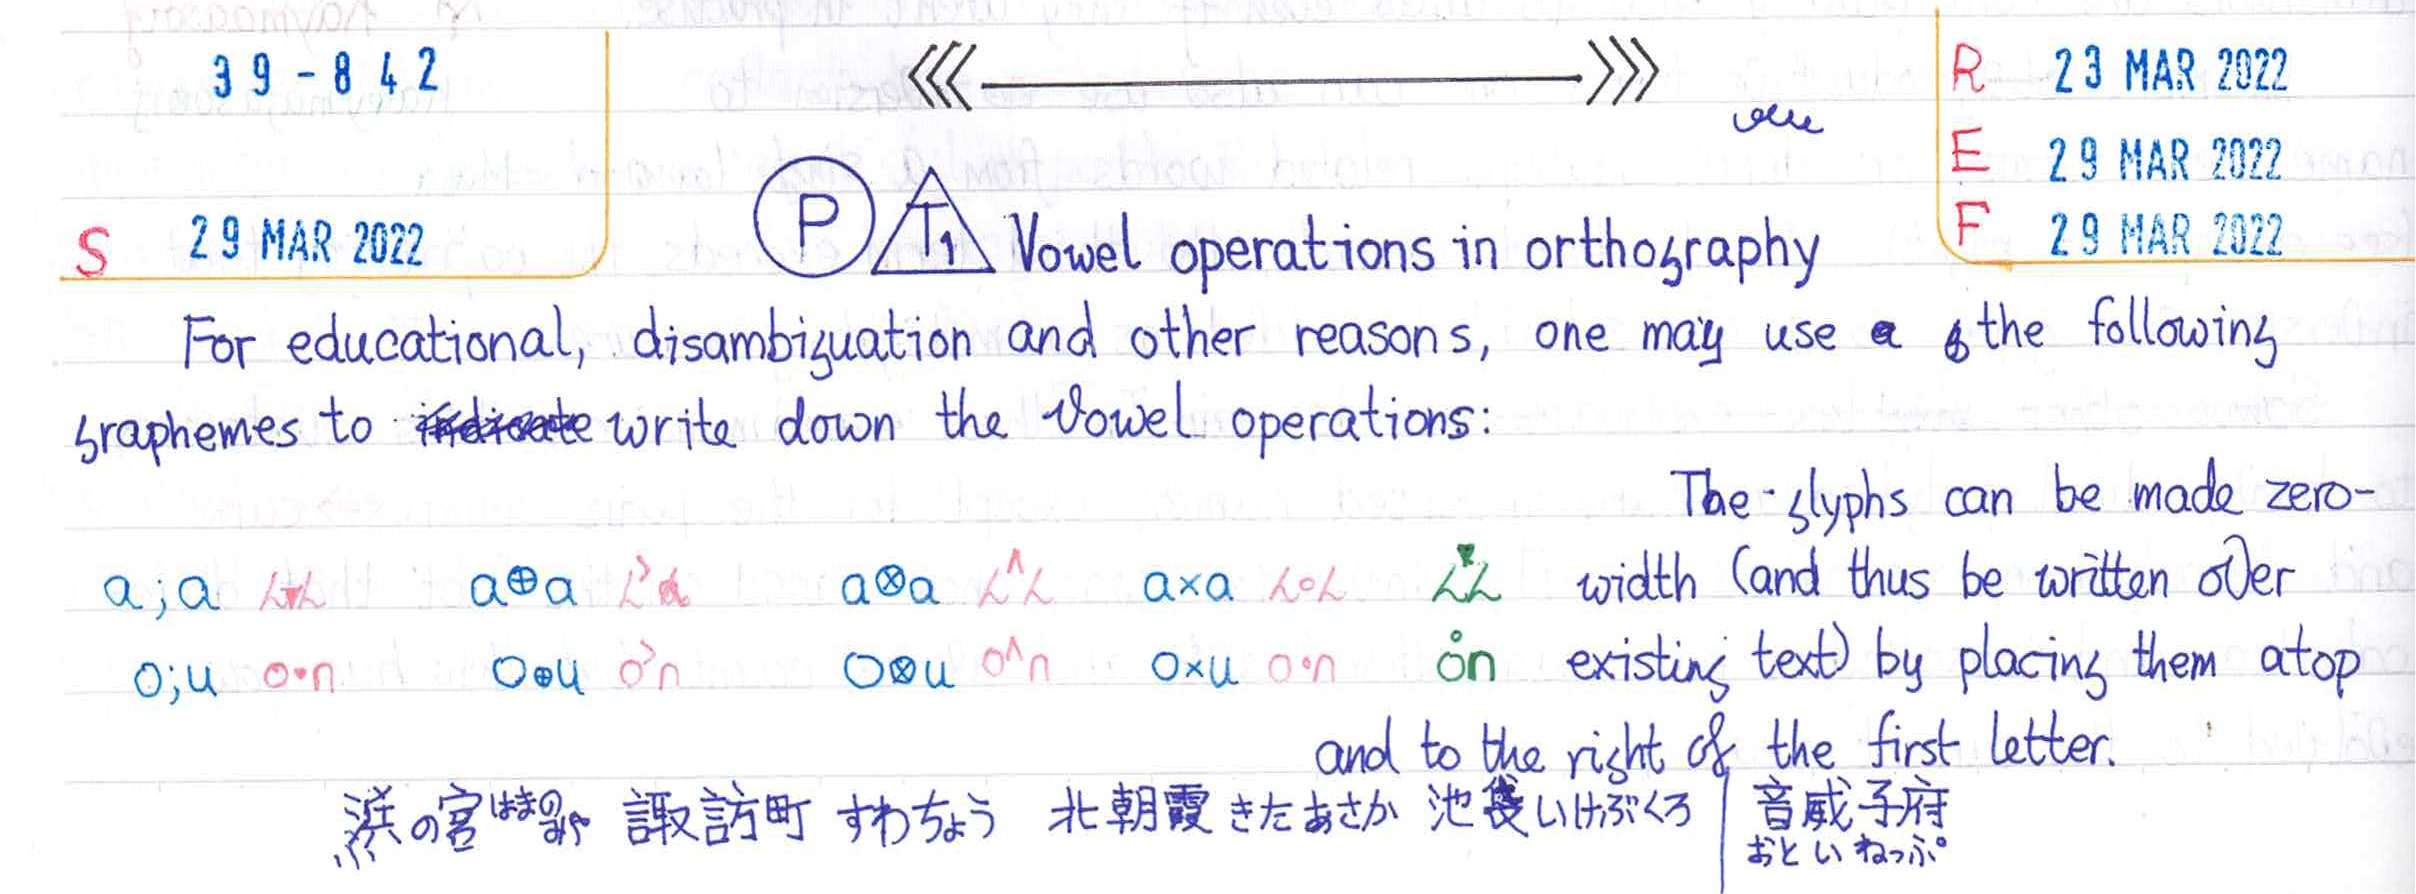 39-842
R 23 MAR 2022
E 29 MAR 2022
S 29 MAR 2022
F 29 MAR 2022
P T1 Vowel operations in orthography
For educational, disambiguation and other reasons, one may use the following
graphemes to write down the vowel operations:
The glyphs can be made zero-
a;a a⊕a a⊗a a×a width (and thus be written over
o;u o•n o⊕u o>n o⊗u o^n o×u o∘n o̊n existing text) by placing them atop
and to the right of the first letter.
浜の宮 はまのみや 諏訪町 すわちょう 北朝霞 きたあさか 池袋 いけぶくろ 音威子府
おといねっぷ